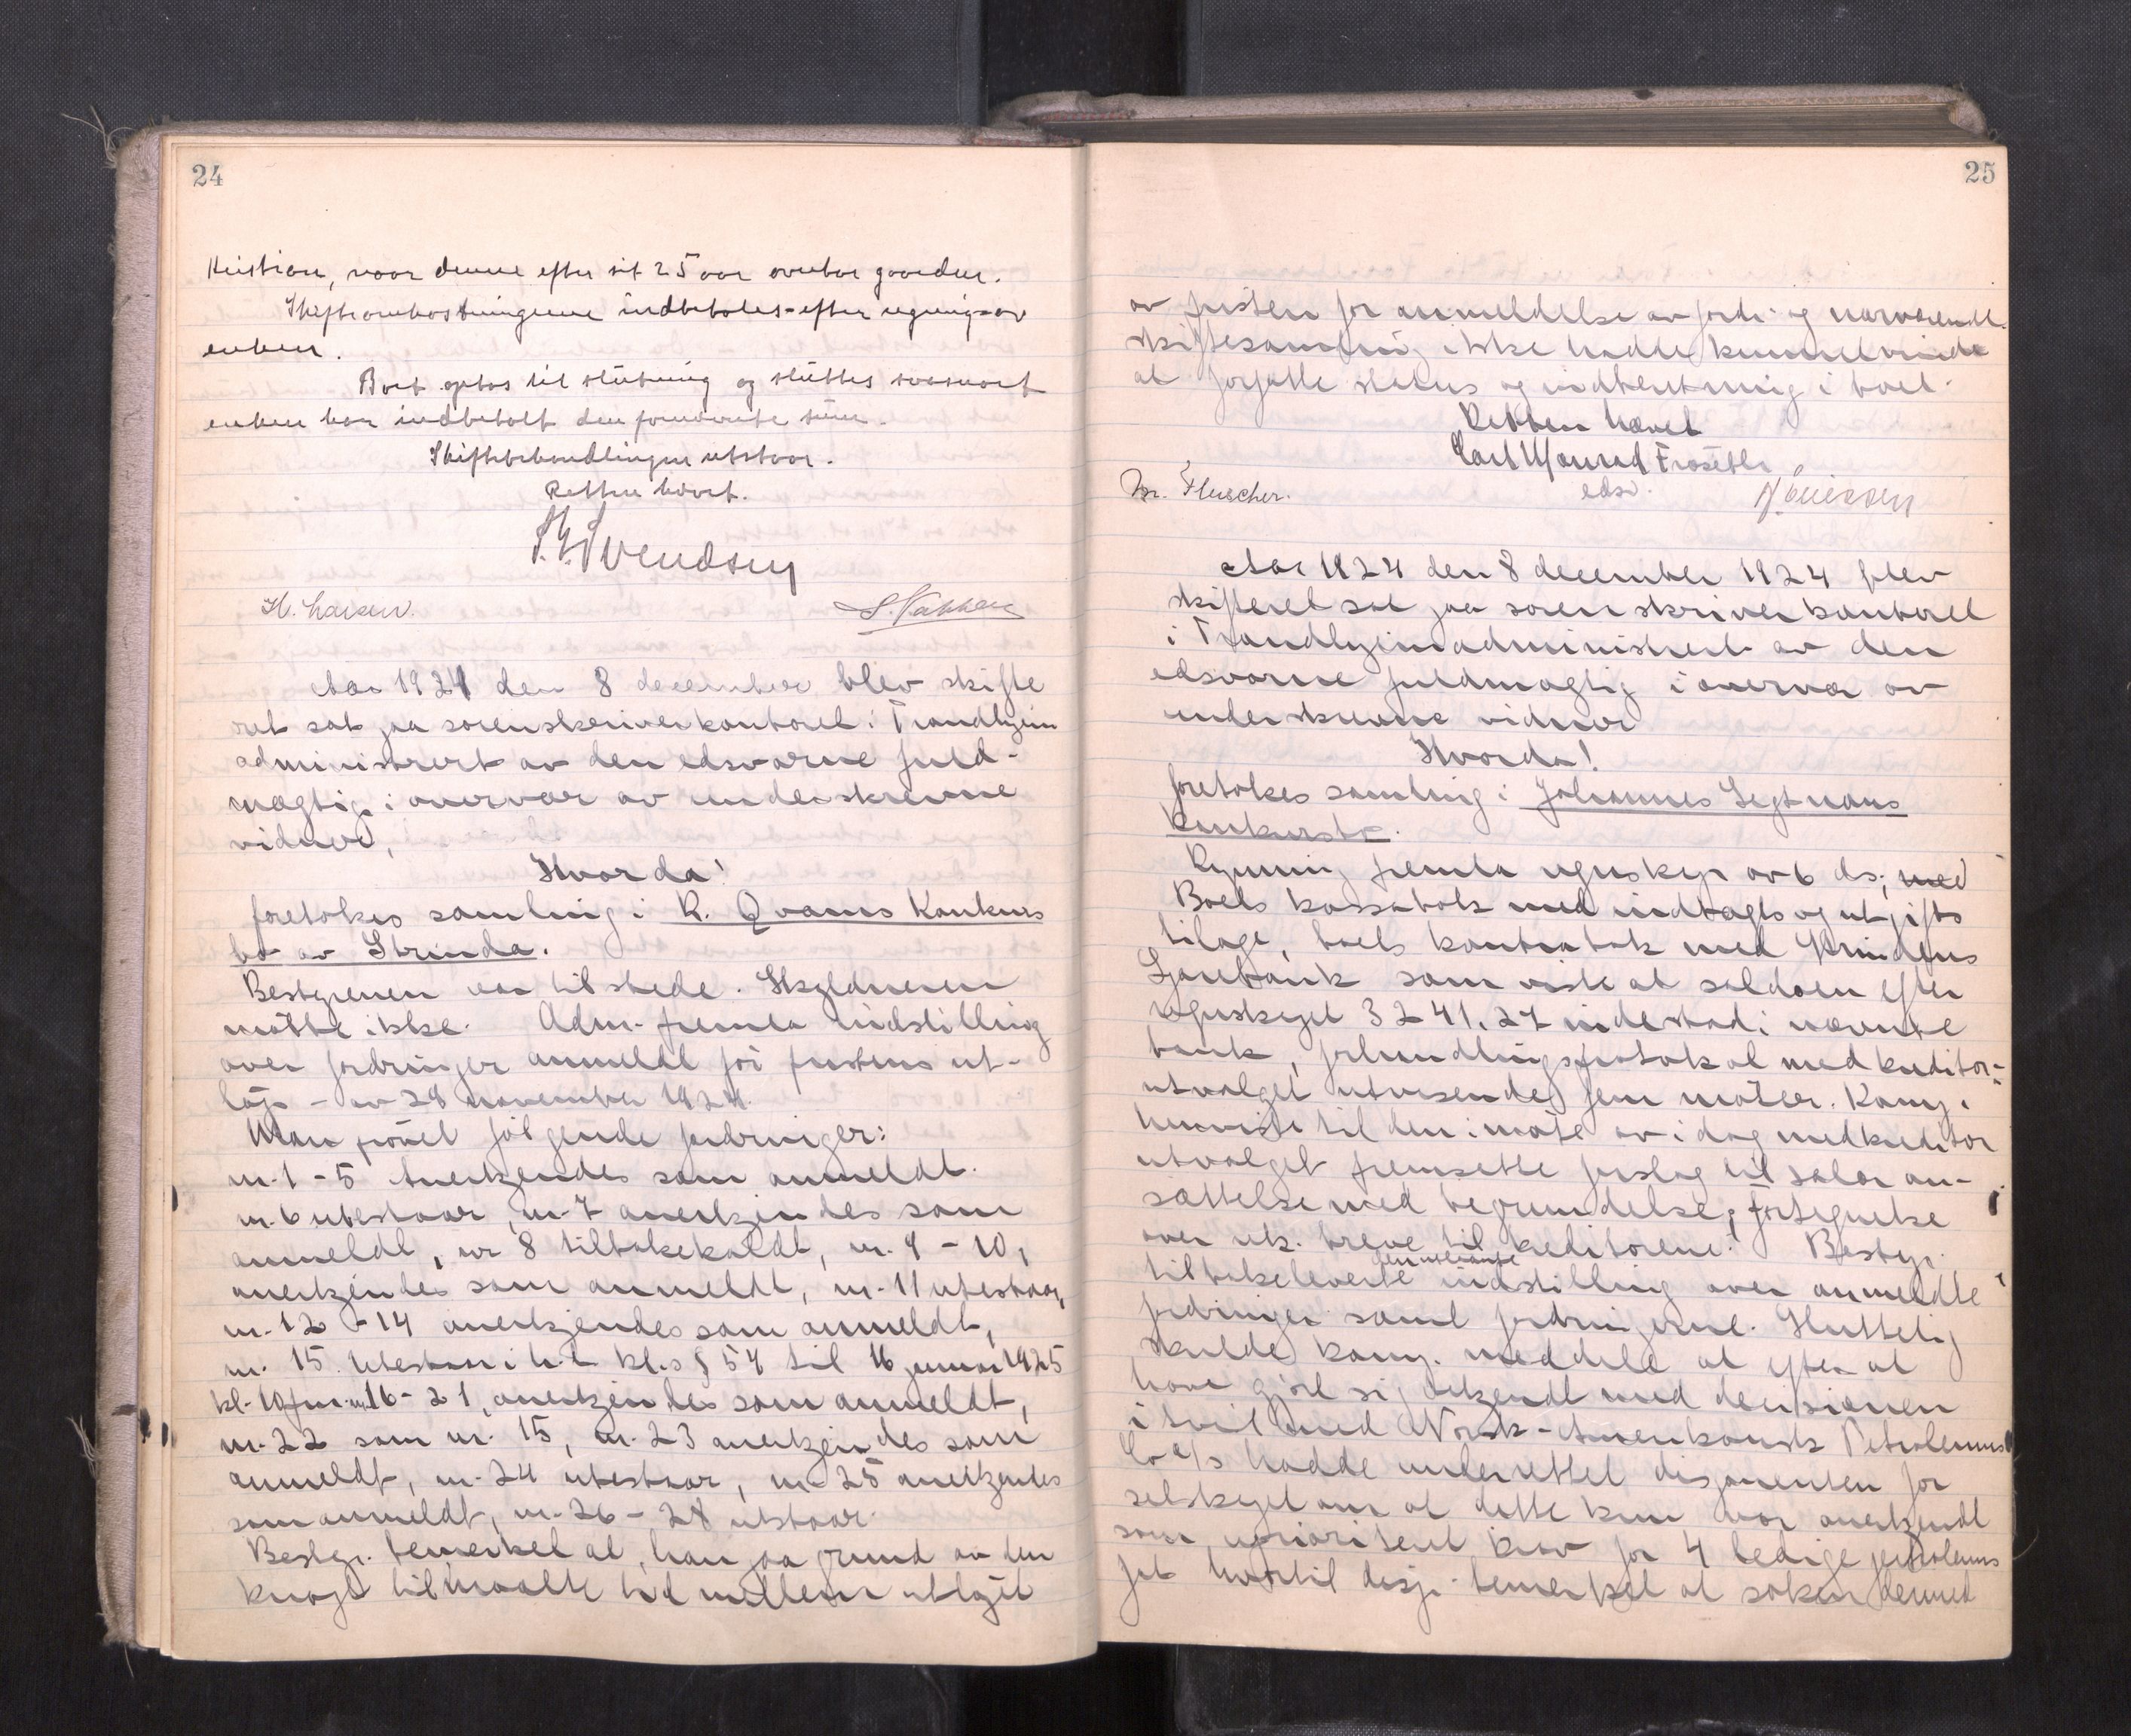 24
Kristian, naar denne efter sit 25 aar overtar gaarden.
Skifteomkostningerne indbetales efter regning av
enken.
Boet optas til slutning og sluttes saasnart
enken har indbetalt den fornævnte sum.
Skiftebehandlingen utstaar.
Retten hævet.
Svendsen
H. Larsen.
Aar 1924 den 8 december blev skifte
ret sat paa sorenskriverkontoret i Trondhjem
administrert av den edsvorne fuld-
mægtig i overvær av underskrevne
vidner,
Hvorda!
foretokes samling i R. Qvams Konkurs
bo av Strinda.
Bestyreren var tilstede. Skyldneren
møtte ikke. Adm. fremla indstilling
over fordringer anmeldt før fristens ut-
løp - av 28 november 1924.
Man prøvet følgende fordringer:
nr. 1 - 5 Anerkjendes som anmeldt.
nr. 6 utestaar, nr. 7 anerkjendes som
anmeldt, nr 8 tilbakekaldt, nr. 9 - 10,
anerkjendes som anmeldt, nr. 11 utestaar,
nr. 12 - 14 anerkjendes som anmeldt,
nr. 15. utestaar i h.t. kl.s § 54 til 16 januar 1925
kl. 10 fm. nr 16 - 21, anerkjendes som anmeldt,
nr. 22 som nr. 15, nr. 23 anerkjendes som
anmeldt, nr. 24 utestaar, nr 25 anerkjendes
som anmeldt, nr. 26 - 28 utstaar.
Bestyr. bemerket at han paa grund av den
knapt tilmaalte tid mellem utløpet
25
av fristen for anmeldelse av fordr. og nærværende
skiftesamling ikke hadde kunnet
at forfatte status og indberetning i boet.
Retten hævet
Carl Konrad Frøseth
eds.
Fleischer.
Aar 1924 den 8 december 1924 blev
skifteret sat paa sorenskriverkontoret
i Trondhjem administrert av den
edsvorne fuldmægtig i overvær av
underskrevne vidner
Hvorda!
foretokes samling i Johannes Segtnans
konkursbo.
Rynning fremla regnskap av 6 ds; med
Boets kassabok med indtægts og utgifts
bilage, boets kontrabok med Strindens
Sparebank som viste at saldoen efter
regnskapet 3241.27 indestod i nævnte
bank, forhandlingsprotokol med kreditor-
utvalget utvisende fem møter. Kom.
henviste til den i møte av idag med kreditor
utvalget fremsatte forslag til salær an-
sættelse med begrundelse, Fortegnelse
over utk. breve til kreditorene. Bestyr.
tilbakeleverte den utlaante indstilling over anmeldte
fordringer samt fordringerne. Sluttelig
skulde kom. meddele at efter at
have gjort sig bekjendt med decisionen
i tvist med Norsk-Amerikansk Petroleums
Co a/s hadde underrettet disponenten for
selskapet om at dette kun var anerkjendt
som uprioritert krav for 4 ledige petroleums
fat hvortil disp. bemerket at saken dermed